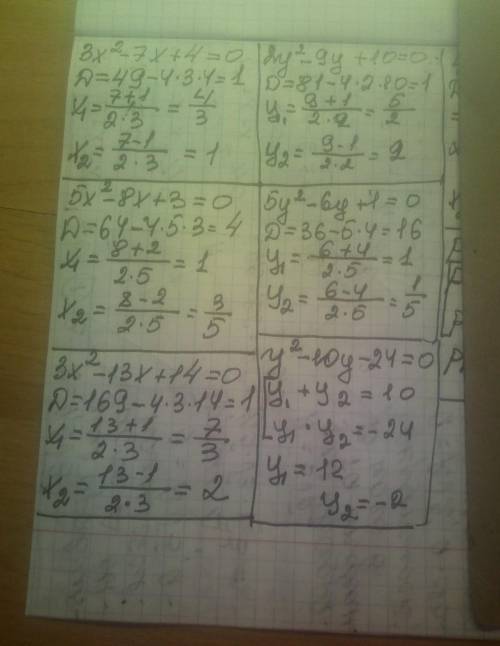 3x²-7x+4=0
D=49-4·3·4=1
x₁=(7+1)/(2·3)=4/3
x₂=(7-1)/(2·3)=1
2y²-9y+10=0
D=81-4·2·10=1
y₁=(9+1)/(2·2)=5/2
y₂=(9-1)/(2·2)=2
5x²-8x+3=0
D=64-4·5·3=4
x₁=(8+2)/(2·5)=1
x₂=(8-2)/(2·5)=3/5
5y²-6y+1=0
D=36-5·4=16
y₁=(6+4)/(2·5)=1
y₂=(6-4)/(2·5)=1/5
3x²-13x+14=0
D=169-4·3·14=1
x₁=(13+1)/(2·3)=7/3
x₂=(13-1)/(2·3)=2
y²-10y-24=0
y₁+y₂=10
y₁·y₂=-24
y₁=12
y₂=-2